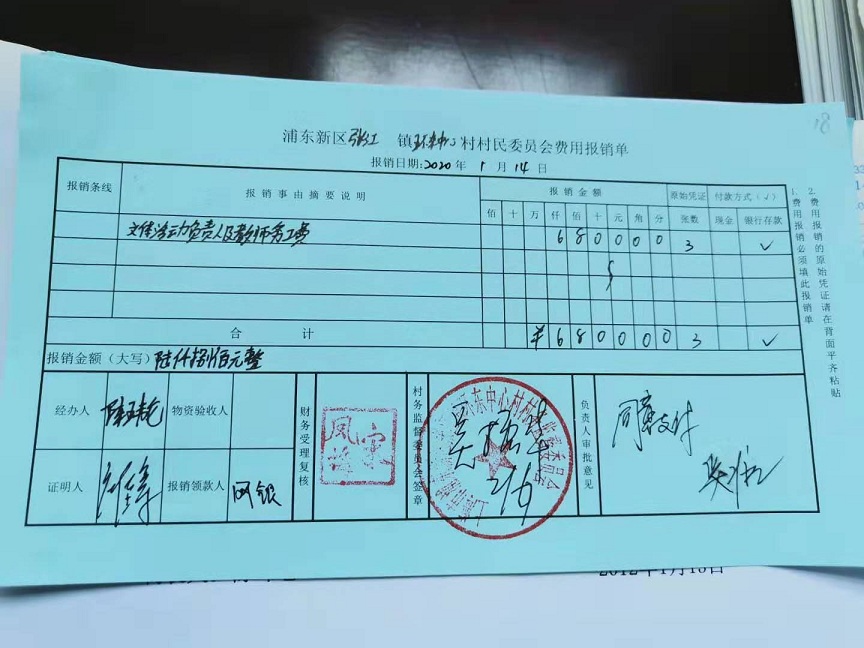 18
浦东新区张江 镇环东中心村村民委员会费用报销单
报销日期:2020年 1 月 14 日
报销条线 报销事由摘要说明 报销金额 原始凭证 付款方式(√)
佰 十 万 仟 佰 十 元 角 分 张数 现金 银行存款
文体活动负责人及教师务工费 6 8 0 0 0 0 3 √
合 计 ¥ 6 8 0 0 0 0 3 √
报销金额(大写) 陆仟捌佰元整
经办人 物资验收人
证明人 报销领款人 网银
财务受理复核
村务监督委员会签章
负责人审批意见 同意支付
1.费用报销必须填此报销单
2.费用报销的原始凭证请在背面平齐粘贴
2012年1月18日